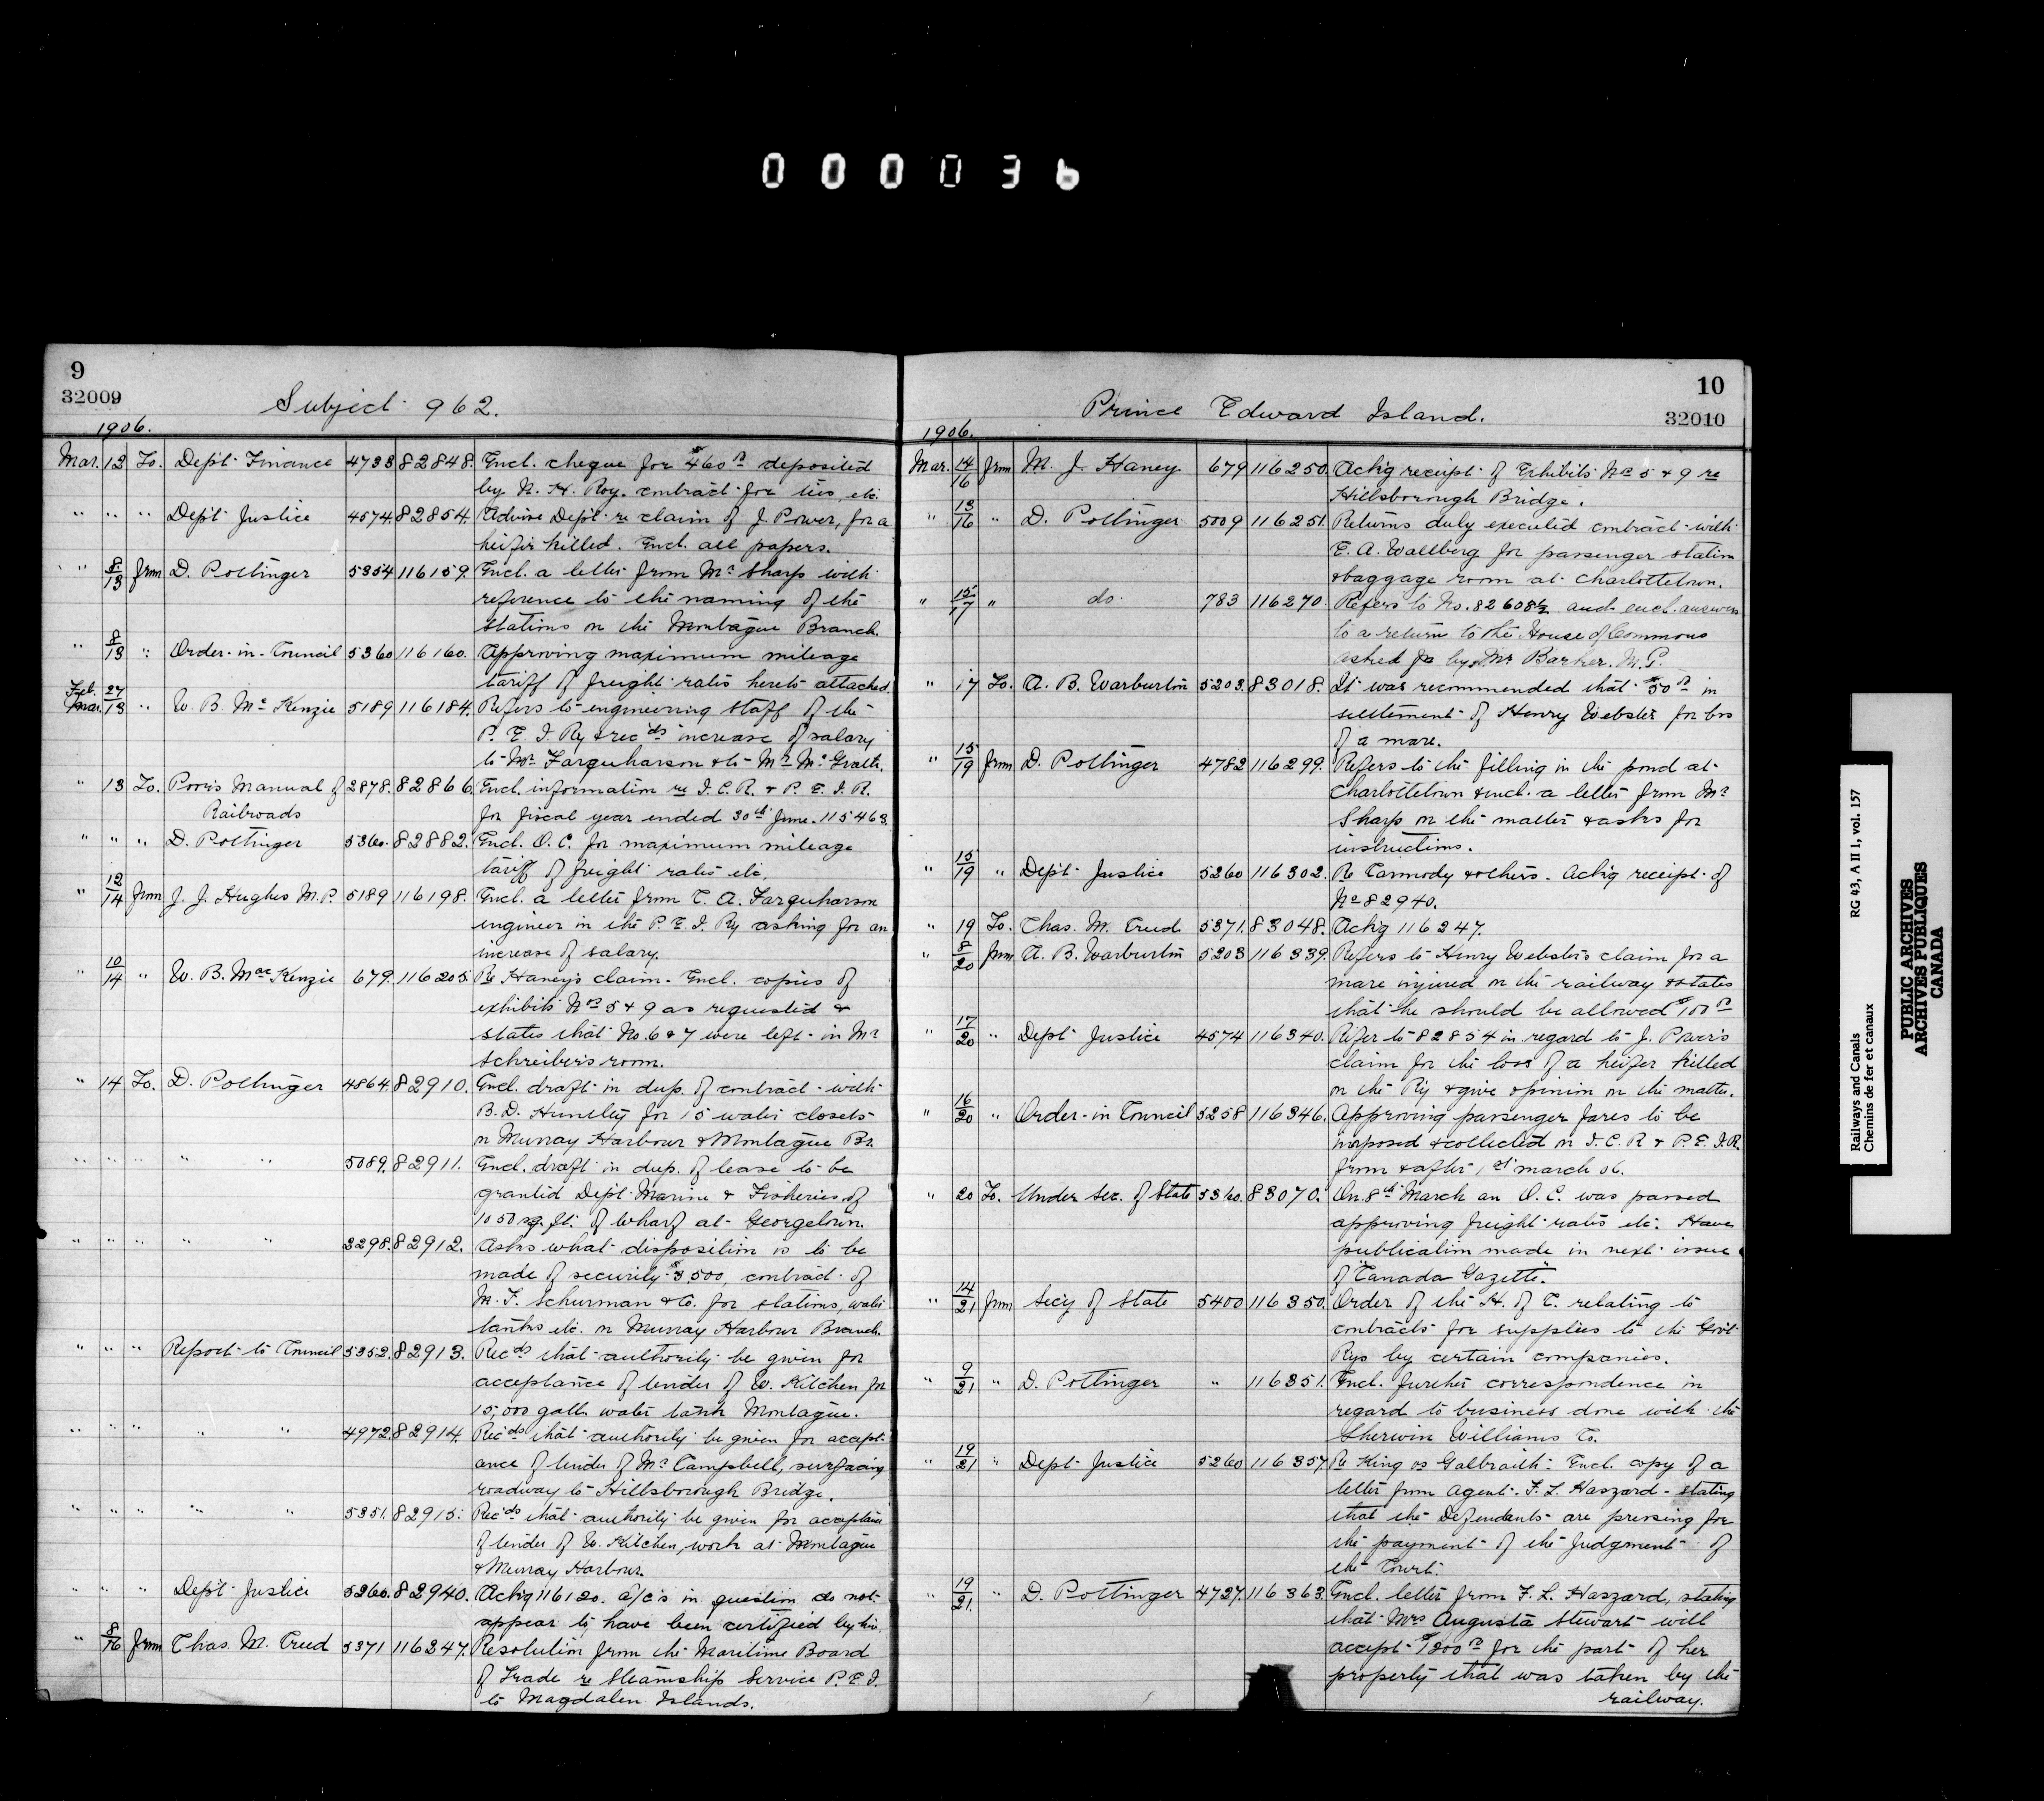 000036
9
32009
Subject 962.
1906.
Mar. 12 To. Dep't Finance 4733 82848. Encl. cheque for $460 00 deposited
by N. H. Roy. contract for ties, etc.
" " " Dep't Justice 4574 82854. Advise Dept. re claim of J. Power, for a
heifer killed. Encl. all papers.
" " 8/13 from D. Pottinger 5354 116159. Encl. a letter from Mr Sharp with
reference to the naming of the
stations on the Montague Branch.
" 8/13 " Order-in-Council 5360 116160. Approving maximum mileage
tariff of freight rates hereto attached.
Feb. Mar. 27/13 " W. B. McKenzie 5189 116184. Refers to engineering staff of the
P. E. I. Ry & rec'ds increase of salary
to Mr Farquharson & to Mr McGrath.
" 13 To. Poor's Manual of 2878. 82866. Encl. information re I. C. R. & P. E. I. R.
Railroads for fiscal year ended 30th June. 115463.
" " " D. Pottinger 5360. 82882. Encl. O. C. for maximum mileage
tariff of freight rates etc.
" 12/14 from J. J. Hughes M.P. 5189 116198. Encl. a letter from C. A. Farquharson
engineer in the P. E. I. Ry asking for an
increase of salary.
" 10/14 " W. B. MacKenzie 679. 116205. Re Haney's claim. Encl. copies of
exhibits Nos 5 & 9 as requested &
states that No. 6 & 7 were left in Mr
Schreiber's room.
" 14 To. D. Pottinger 4864. 82910. Encl. draft in dup. of contract with
B. D. Huntley for 15 water closets
on Murray Harbour & Montague Br.
" " " " " 5089. 82911. Encl. draft in dup. of lease to be
granted Dep't Marine & Fisheries of
1050 sq. ft. of wharf at Georgetown.
" " " " " 3298. 82912. Asks what disposition is to be
made of security $3,500, contract of
M. F. Schurman & Co. for stations, water
tanks etc. on Murray Harbour Branch.
" " " Report to Council 5352. 82913. Rec'ds that authority be given for
acceptance of tender of W. Kitchen for
15,000 galls water tank Montague.
" " " " " 4972. 82914. Rec'ds that authority be given for accept-
ance of tender of Mr Campbell, surfacing
roadway to Hillsborough Bridge.
" " " " " 5351. 82915. Rec'ds that authority be given for acceptance
of tender of W. Kitchen, work at Montague
& Murray Harbour.
" " " Dep't Justice 5260. 82940. Ackg 116120. a/c's in question do not
appear to have been certified by him.
" 8/16 from Chas. M. Creed 5371 116247. Resolution from the Maritime Board
of Trade re Steamship Service P. E. I.
to Magdalen Islands.
10
32010
Prince Edward Island.
1906.
Mar. 14/16 from M. J. Haney 679 116250. Ackg receipt of Exhibits Nos 5 & 9 re
Hillsborough Bridge.
" 13/16 " D. Pottinger 5009 116251. Returns duly executed contract with
E. A. Wallberg for passenger station
& baggage room at Charlottetown.
" 15/17 " do. 783 116270. Refers to No. 82608½ and encl. answers
to a return to the House of Commons
asked for by Mr Barker. M. P.
" 17 To. A. B. Warburton 5203. 83018. It was recommended that $50 00 in
settlement of Henry Webster for loss
of a mare.
" 15/19 from D. Pottinger 4782 116299. Refers to the filling in the pond at
Charlottetown & encl. a letter from Mr
Sharp on the matter & asks for
instructions.
" 15/19 " Dep't Justice 5260 116302. Re Carmody & others. Ackg receipt of
No 82940.
" 19 To. Chas. M. Creed 5371. 83048. Ackg 116247.
" 8/20 from A. B. Warburton 5203 116339. Refers to Henry Webster's claim for a
mare injured on the railway & states
that he should be allowed $100 00
" 17/20 " Dep't Justice 4574 116340. Refer to 82854 in regard to J. Power's
claim for the loss of a heifer killed
on the Ry & give opinion on the matter.
" 16/20 " Order-in Council 5258 116346. Approving passenger fares to be
imposed & collected on I. C. R & P. E. I. R.
from & after 1st March 06.
" 20 To. Under Sec. of State 5360. 83070. On 8th March an O. C. was passed
approving freight rates etc. Have
publication made in next issue
of "Canada Gazette".
" 14/21 from Sec'y of State 5400 116350. Order of the H. of C. relating to
contracts for supplies to the Gov't
Rys by certain companies.
" 9/21 " D. Pottinger " 116351. Encl. further correspondence in
regard to business done with the
Sherwin Williams Co.
" 19/21 " Dep't Justice 5260 116357. Re King vs Galbraith. Encl. copy of a
letter from Agent F. L. Haszard - stating
that the Defendants are pressing for
the payment of the Judgment of
the Court.
" 19/21. " D. Pottinger 4727. 116363. Encl. letter from F. L. Haszard, stating
that Mrs Augusta Stewart will
accept $1200 00 for the part of her
property that was taken by the
railway.
Railways and Canals RG 43, A II 1, vol. 157
Chemins de fer et canaux
PUBLIC ARCHIVES
ARCHIVES PUBLIQUES
CANADA